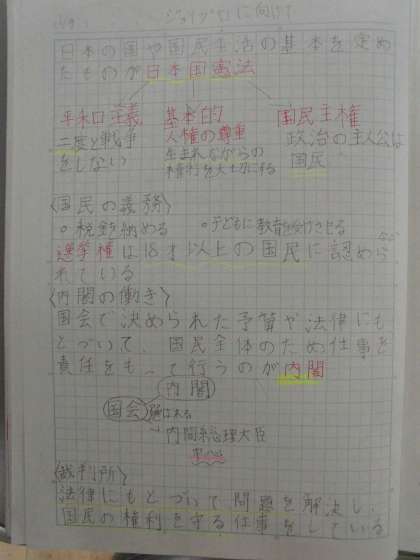 ジョイプロに向けて
日本の国や国民生活の基本を定め
たものが日本国憲法
平和主義
二度と戦争
をしない
基本的
人権の尊重
生まれながらの
権利を大切にする
国民主権
政治の主人公は
国民
〈国民の義務〉
○税を納める ○子どもに教育を受けさせる
選挙権は18才以上の国民に認めら
れている
〈内閣の働き〉
国会で決められた予算や法律にも
とづいて、国民全体のため仕事を
責任をもって行うのが内閣
内閣
国会
内閣総理大臣
〈裁判所〉
法律にもとづいて問題を解決し、
国民の権利を守る仕事をしている